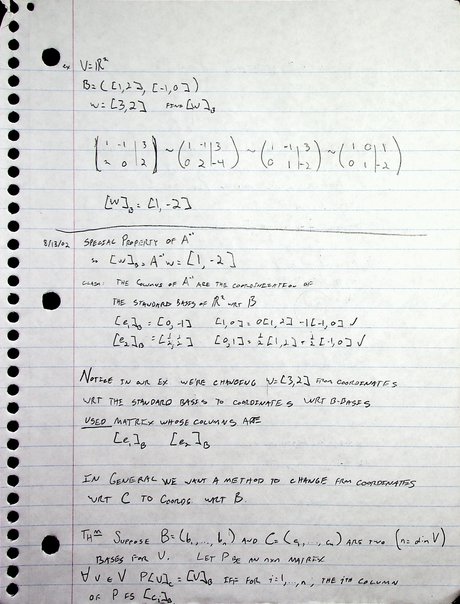 ex V=ℝ²
B=([1,2], [-1,0])
w=[3,2] FIND [w]_B
[1 -1 | 3 ~ (1 -1 | 3 ~ (1 -1 | 3 ~ (1 0 | 1
2 0 | 2) 0 2 | -4) 0 1 | -2) 0 1 | -2)
[w]_B = [1,-2]
8/13/02 SPECIAL PROPERTY OF A⁻¹
so [w]_B = A⁻¹w = [1,-2]
CLAIM: THE COLUMNS OF A⁻¹ ARE THE COORDINIZATION OF
THE STANDARD BASES OF ℝ² WRT B
[e₁]_B = [0,-1] [1,0] = 0[1,2] -1[-1,0] ✓
[e₂]_B = [½,½] [0,1] = ½[1,2] + ½[-1,0] ✓
NOTICE IN OUR EX WE'RE CHANGING V=[3,2] FROM COORDINATES
WRT THE STANDARD BASES TO COORDINATES WRT B-BASES
USED MATRIX WHOSE COLUMNS ARE
[e₁]_B [e₂]_B
IN GENERAL WE WANT A METHOD TO CHANGE FROM COORDINATES
WRT C TO COORDS WRT B.
THᵐ SUPPOSE B=(b₁,...,bₙ) AND C=(c₁,...,cₙ) ARE TWO (n=dim V)
BASES FOR V. LET P BE AN nxn MATRIX
∀ v ∈ V P[v]_C = [v]_B IFF FOR i=1,...,n, THE iTH COLUMN
OF P IS [c_i]_B